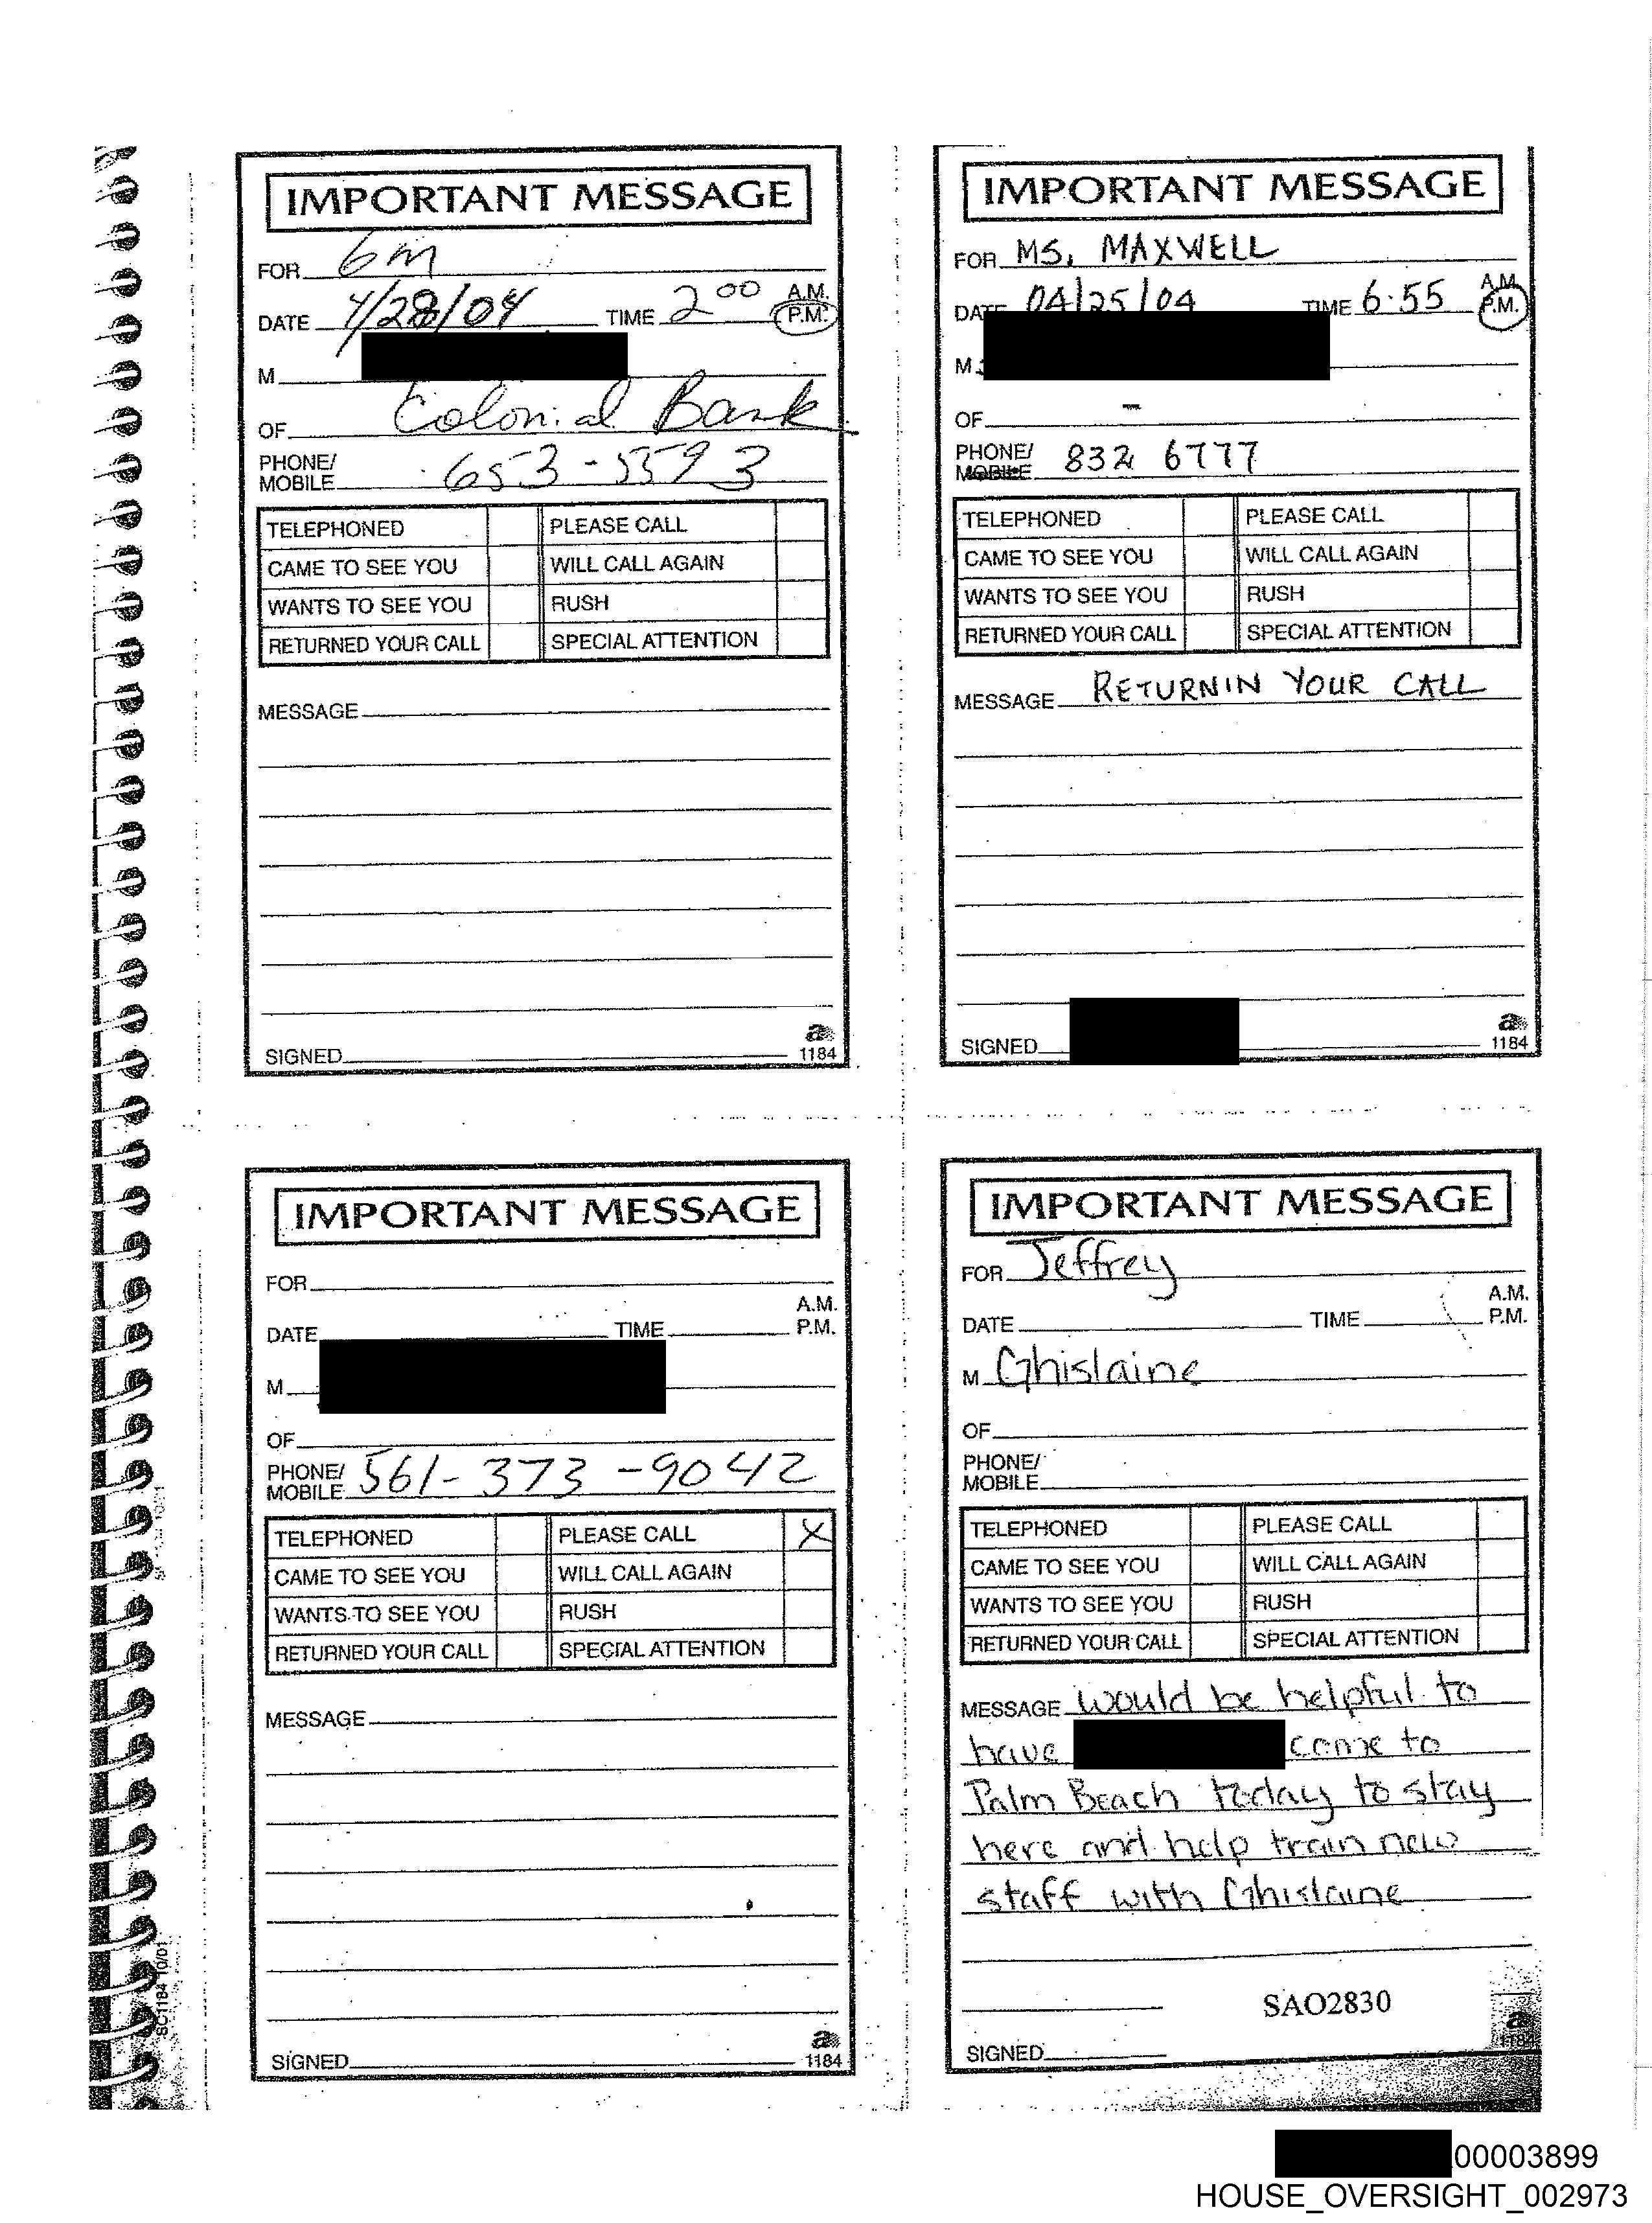 IMPORTANT MESSAGE
FOR GM
DATE 4/28/04 TIME 2 00 A.M. P.M.
M
OF Colonial Bank
PHONE/ MOBILE 653-5593
TELEPHONED PLEASE CALL
CAME TO SEE YOU WILL CALL AGAIN
WANTS TO SEE YOU RUSH
RETURNED YOUR CALL SPECIAL ATTENTION
MESSAGE
SIGNED
a
1184
IMPORTANT MESSAGE
FOR MS. MAXWELL
DATE 04/25/04 TIME 6:55 A.M. P.M.
M
OF -
PHONE/ MOBILE 832 6777
TELEPHONED PLEASE CALL
CAME TO SEE YOU WILL CALL AGAIN
WANTS TO SEE YOU RUSH
RETURNED YOUR CALL SPECIAL ATTENTION
MESSAGE RETURNIN YOUR CALL
SIGNED
a
1184
IMPORTANT MESSAGE
FOR
DATE TIME A.M. P.M.
M
OF
PHONE/ MOBILE 561-373-9042
TELEPHONED PLEASE CALL X
CAME TO SEE YOU WILL CALL AGAIN
WANTS TO SEE YOU RUSH
RETURNED YOUR CALL SPECIAL ATTENTION
MESSAGE
SIGNED
a
1184
IMPORTANT MESSAGE
FOR Jeffrey
DATE TIME A.M. P.M.
M Ghislaine
OF
PHONE/ MOBILE
TELEPHONED PLEASE CALL
CAME TO SEE YOU WILL CALL AGAIN
WANTS TO SEE YOU RUSH
RETURNED YOUR CALL SPECIAL ATTENTION
MESSAGE would be helpful to
have come to
Palm Beach today to stay
here and help train new
staff with Ghislaine
SAO2830
SIGNED
a
1184
SC1184 10/01
00003899
HOUSE_OVERSIGHT_002973